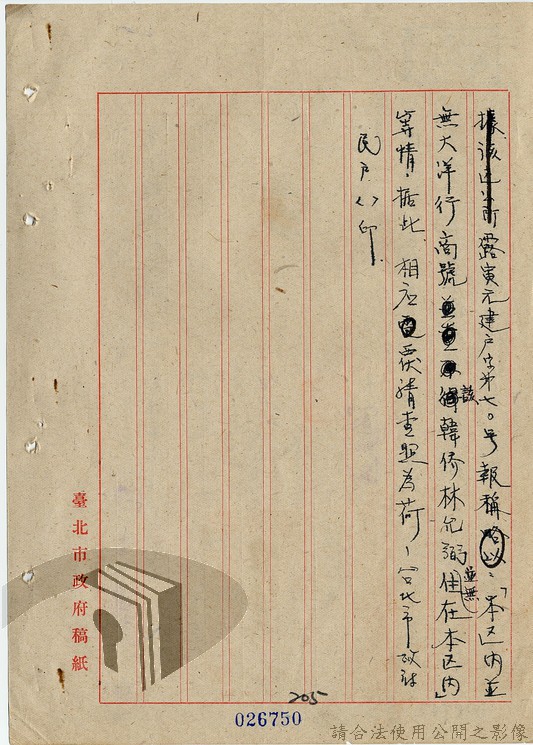 據該區公所露寅元建戶字第七〇号報稱略以：「本区內並
無大洋行商號該韓侨林允弼並無住在本区內」
等情，据此，相应電覆請查照為荷！台北市政府
民戶()印
臺北市政府稿紙
205
026750
請合法使用公開之影像